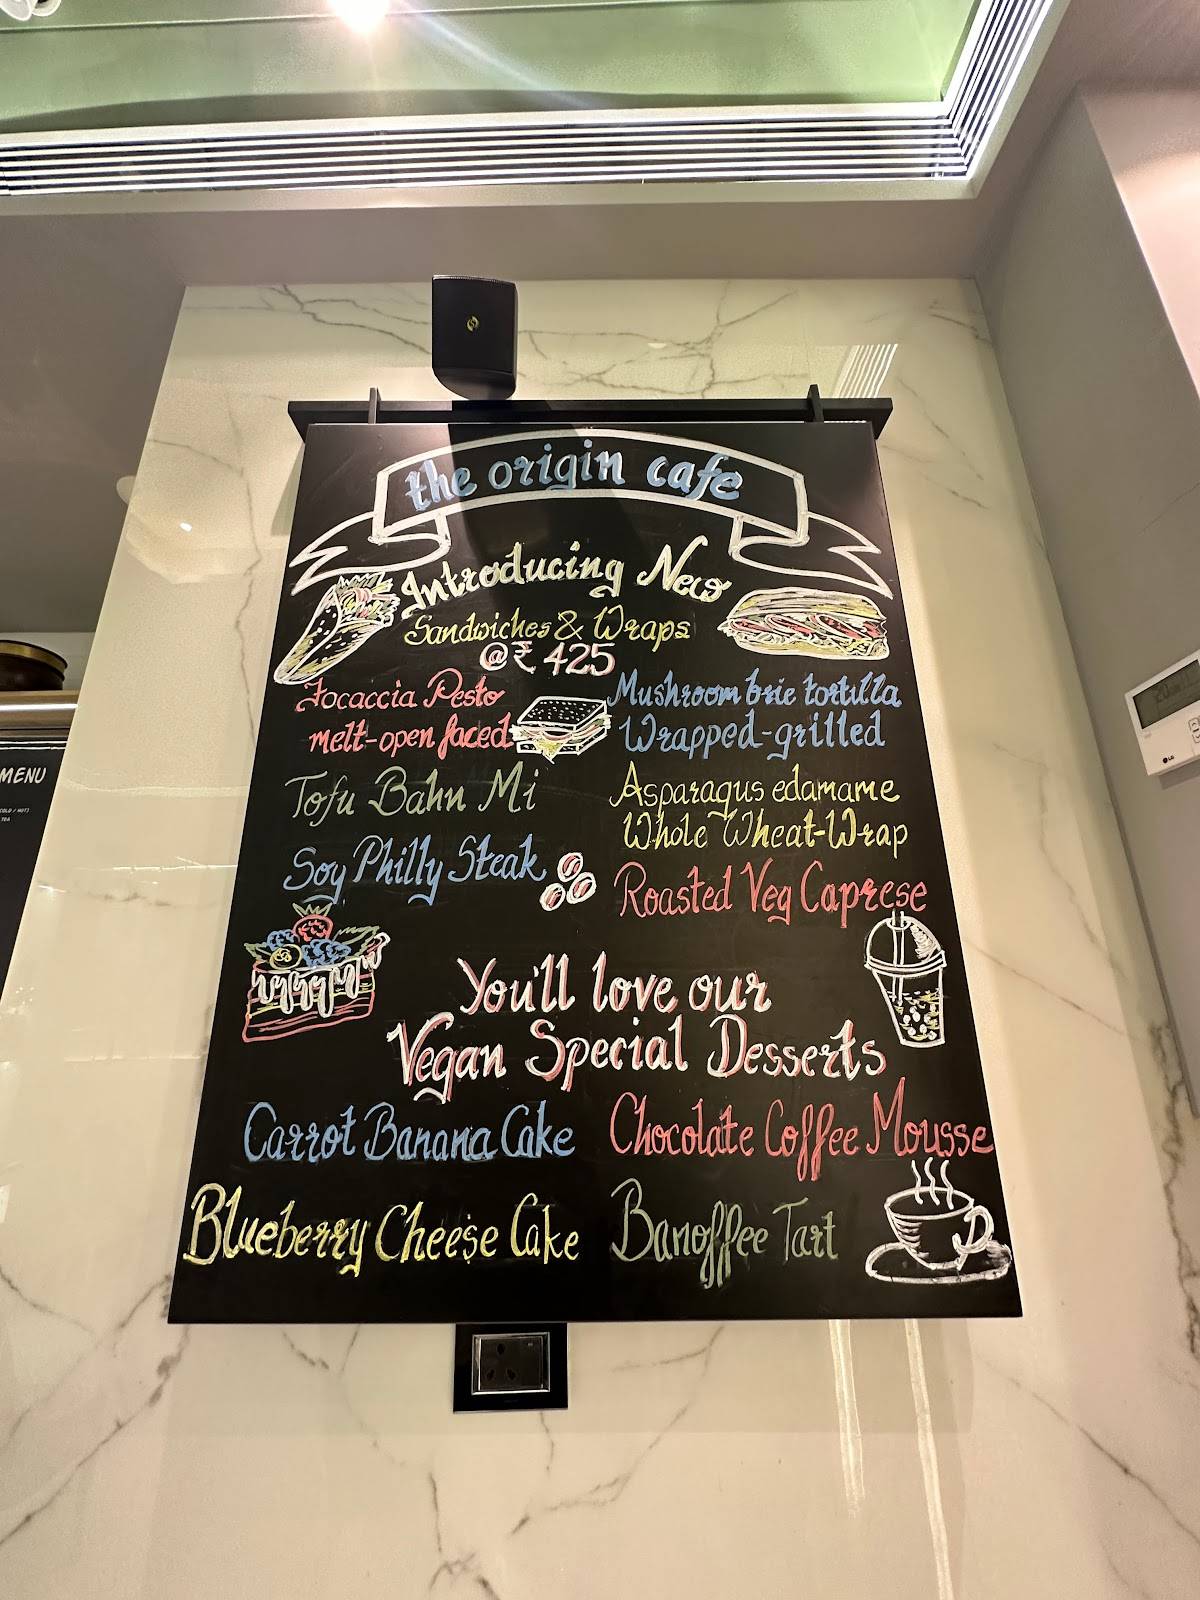 the origin cafe
Introducing New
Sandwiches & Wraps
@ ₹ 425
Focaccia Pesto
melt-open faced
Tofu Bahn Mi
Soy Philly Steak
Mushroom brie tortilla
Wrapped-grilled
Asparagus edamame
Whole Wheat-Wrap
Roasted Veg Caprese
You'll love our
Vegan Special Desserts
Carrot Banana Cake
Chocolate Coffee Mousse
Blueberry Cheese Cake
Banoffee Tart
MENU
COLD / HOT)
TEA
LG